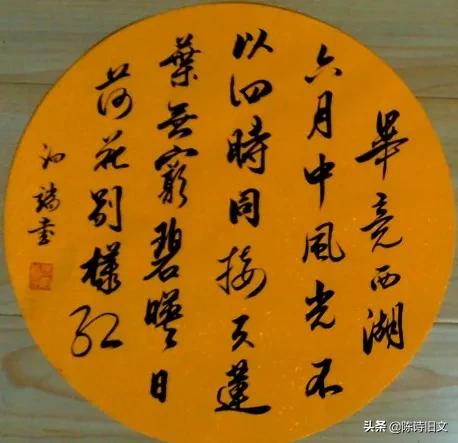 畢竟西湖
六月中風光不
以四時同接天蓮
葉無窮碧暎日
荷花别樣紅
書
头条 @陈诗旧文